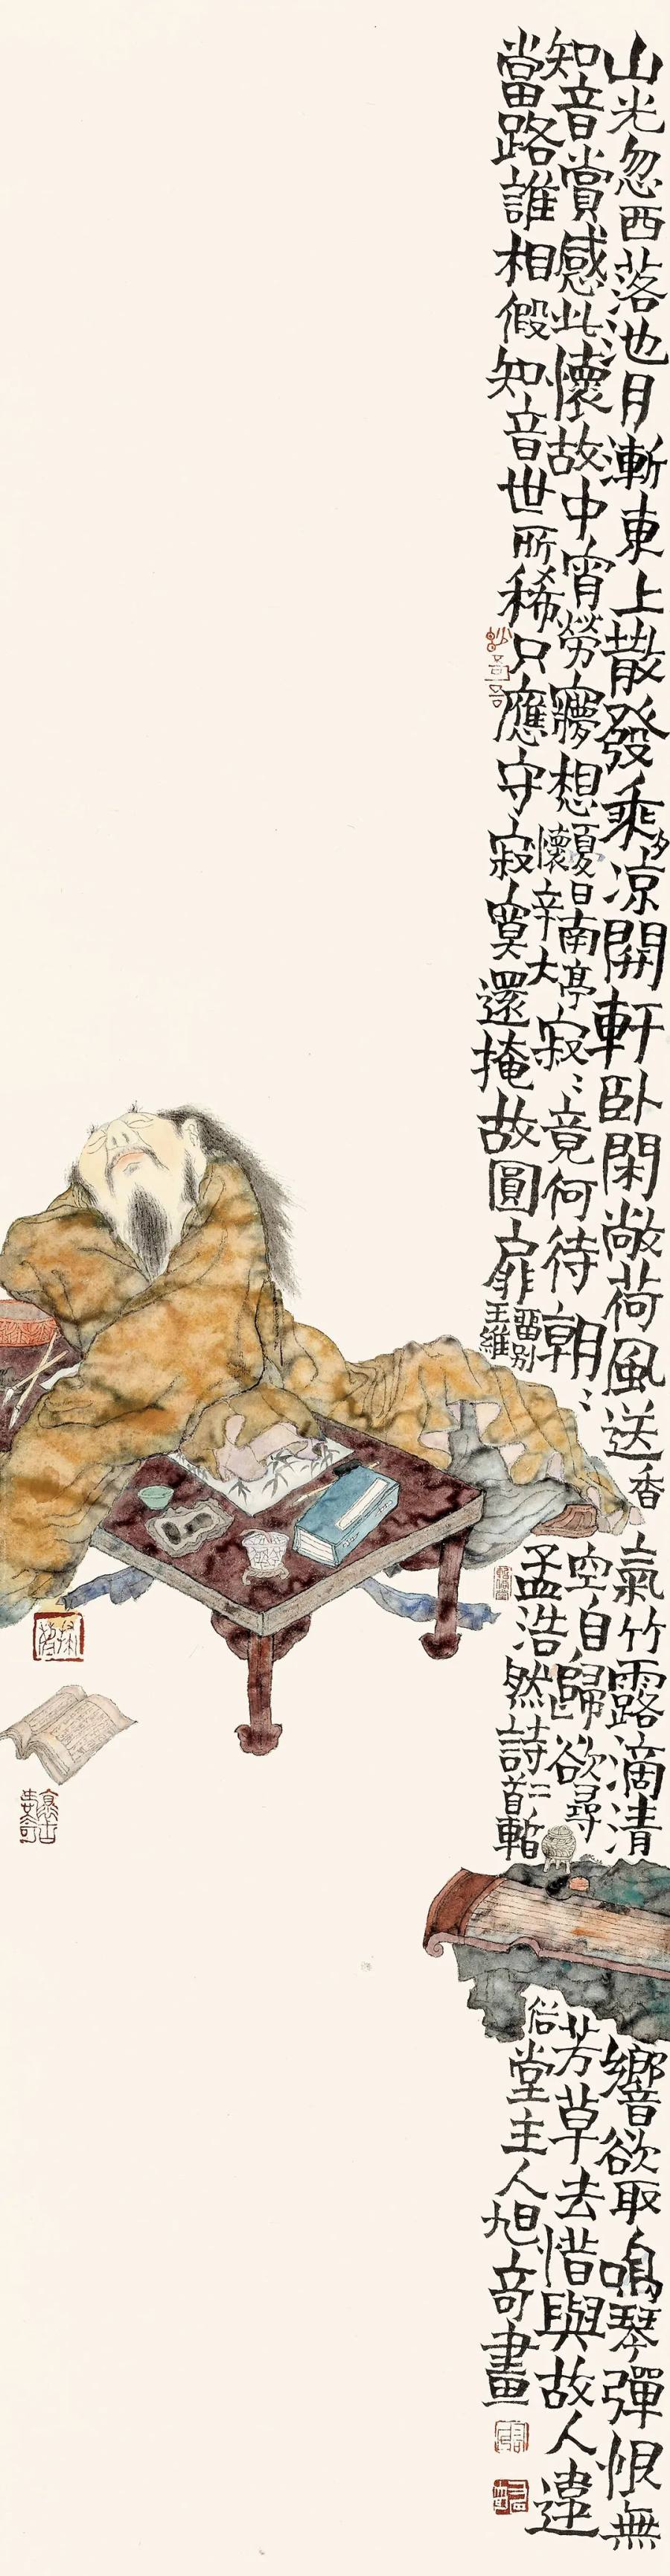 山光忽西落池月漸東上散發乘夕凉開軒卧閑敞荷風送香氣竹露滴清響欲取鳴琴彈恨無
知音賞感此懷故中宵勞夢想
夏日南亭
懷辛大
寂〻竟何待朝〻空自歸欲尋芳草去惜與故人違
當路誰相假知音世所稀只應守寂寞還掩故圓扉
留别
王維
孟浩然詩二首
俗堂主人旭奇畫